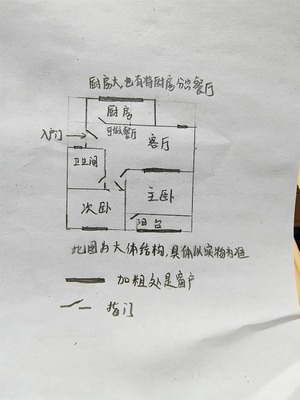 厨房大,也有将厨房分半客厅
厨房
可做餐厅
入户门
客厅
卫卫间
主卧
次卧
阳台
此图为大体结构,具体以实物为准
加粗处是窗户
指门